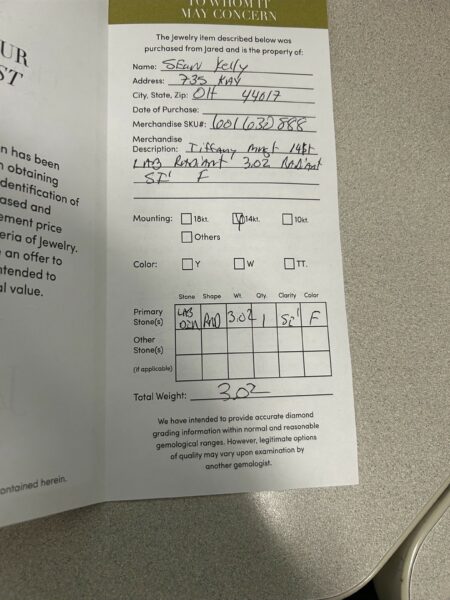 TO WHOM IT
MAY CONCERN
The jewelry item described below was
purchased from Jared and is the property of:
Name: Sean Kelly
Address: 735 KAY
City, State, Zip: OH 44017
Date of Purchase:
Merchandise SKU#: 6001632888
Merchandise
Description: Tiffany 14kt
LAB Radiant 3.02 Radiant
SI1 F
Mounting: 18kt. 14kt. 10kt.
Others
Color: Y W TT.
Stone Shape Wt. Qty. Clarity Color
Primary
Stone(s) LAB DIA RAD 3.02 1 SI1 F
Other
Stone(s)
(if applicable)
Total Weight: 3.02
We have intended to provide accurate diamond
grading information within normal and reasonable
gemological ranges. However, legitimate options
of quality may vary upon examination by
another gemologist.
UR
ST
n has been
obtaining
dentification of
ased and
ement price
eria of Jewelry.
an offer to
ntended to
al value.
ontained herein.